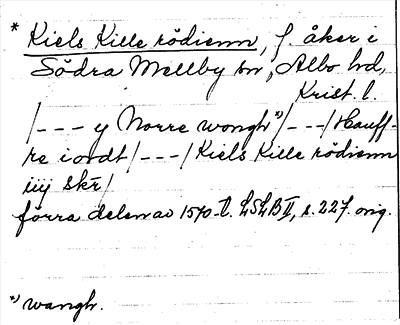 * Kiels Kille rödienn, f. åker i
Södra Mellby sn, Albo hd,
Krist. l.
/--- y Norre wongh *)/---/Hauff-
re i ordt/---/Kiels Kille rödienn
iiij skr/
förra delen av 1570-t. LSLB II, s. 227. orig.
*) wangh.